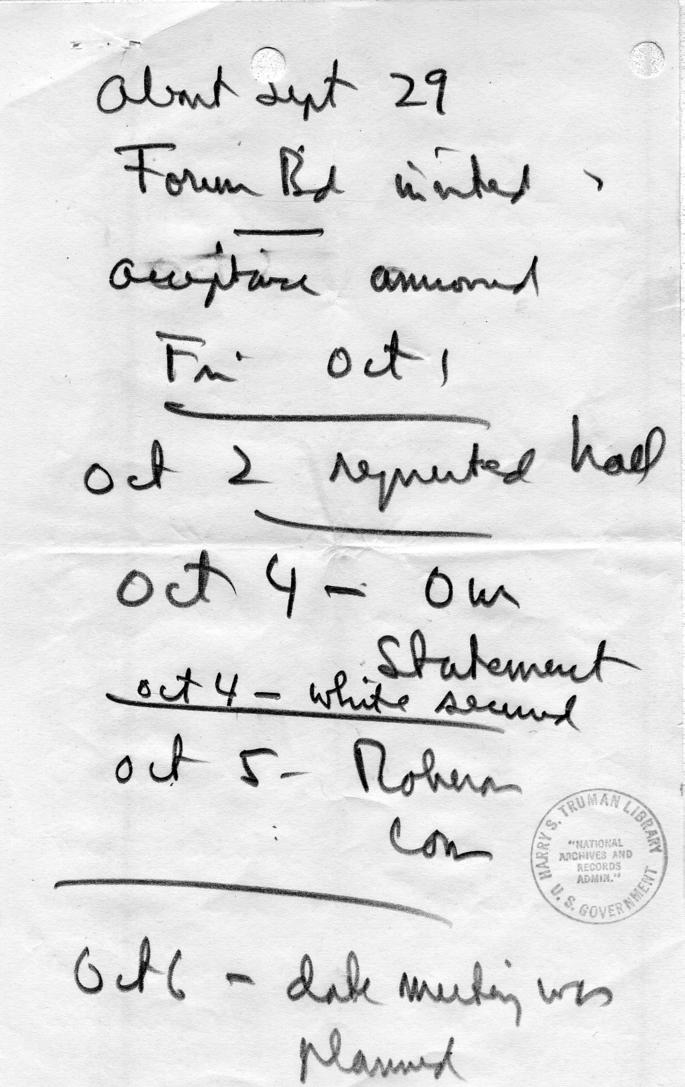 About Sept 29
Forum Bd invited
acceptance announced
Fri Oct 1
Oct 2 requested hall
Oct 4 - Our
Statement
Oct 4 - White secured
Oct 5 -
Com
Oct 6 - date meeting was
planned
HARRY S. TRUMAN LIBRARY
"NATIONAL
ARCHIVES AND
RECORDS
ADMIN."
U. S. GOVERNMENT